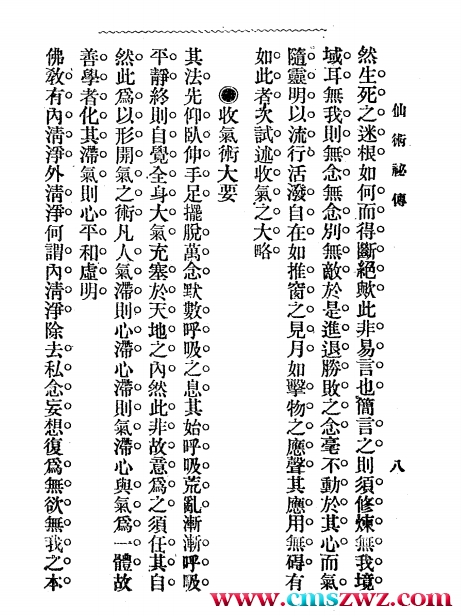 仙術祕傳
八
然生死之迷根如何而得斷絕歟此非易言也簡言之則須修煉無我境
域耳無我則無念無念別無敵於是進退勝敗之念毫不動於其心而氣
隨靈明以流行活潑自在如推窗之見月如擊物之應聲其應用無碍有
如此者次試述收氣之大略
收氣術大要
其法先仰臥伸手足擺脫萬念默數呼吸之息其始呼吸荒亂漸漸呼吸
平靜終則自覺全身大氣充塞於天地之內然此非故意為之須任其自
然此為以形開氣之術凡人氣滯則心滯心滯則氣滯心與氣為一體故
善學者化其滯氣則心平和虛明
佛教有內淸淨外淸淨何謂內淸淨除去私念妄想復為無欲無我之本
www.cmszwz.com